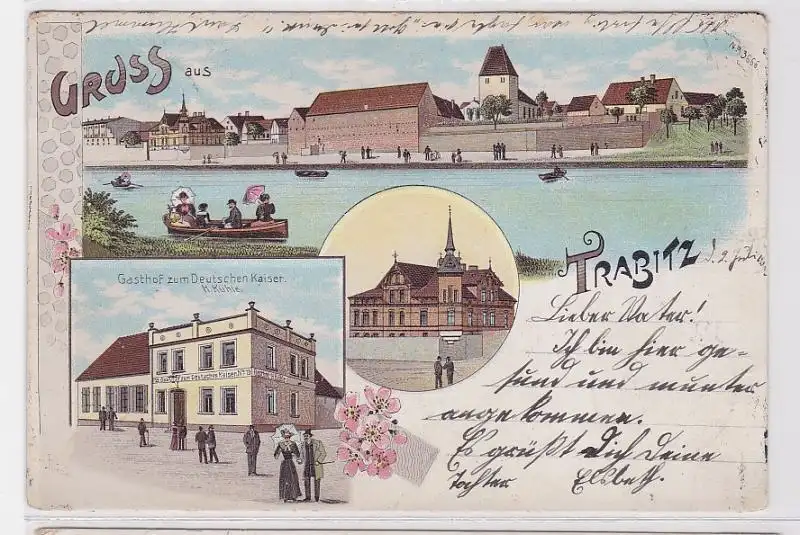 Gruss aus
No 3656
Trabitz
d. 2. Juli
Lieber Vater!
Ich bin hier ge-
sund und munter
angekommen.
Es grüßt Dich Deine
Tochter Elsbeth.
Gasthof zum Deutschen Kaiser.
H. Kühle.
Gasthof zum Deutschen Kaiser